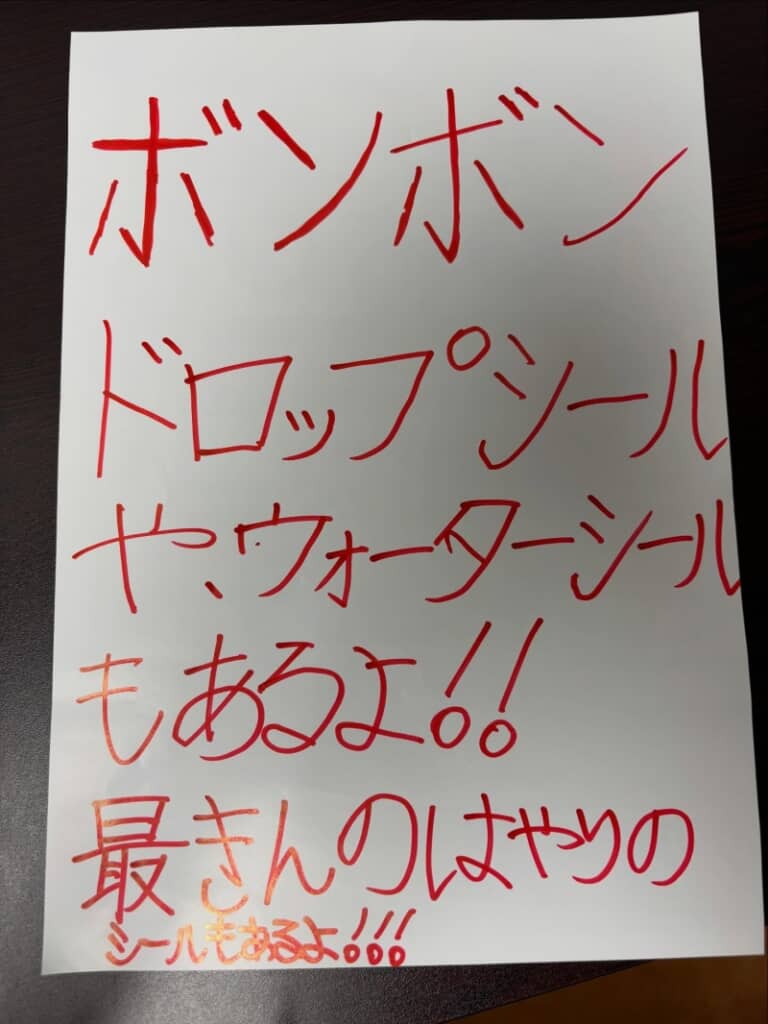 ボンボン
ドロップシール
や、ウォーターシール
もあるよ!!
最きんのはやりの
シールもあるよ!!!